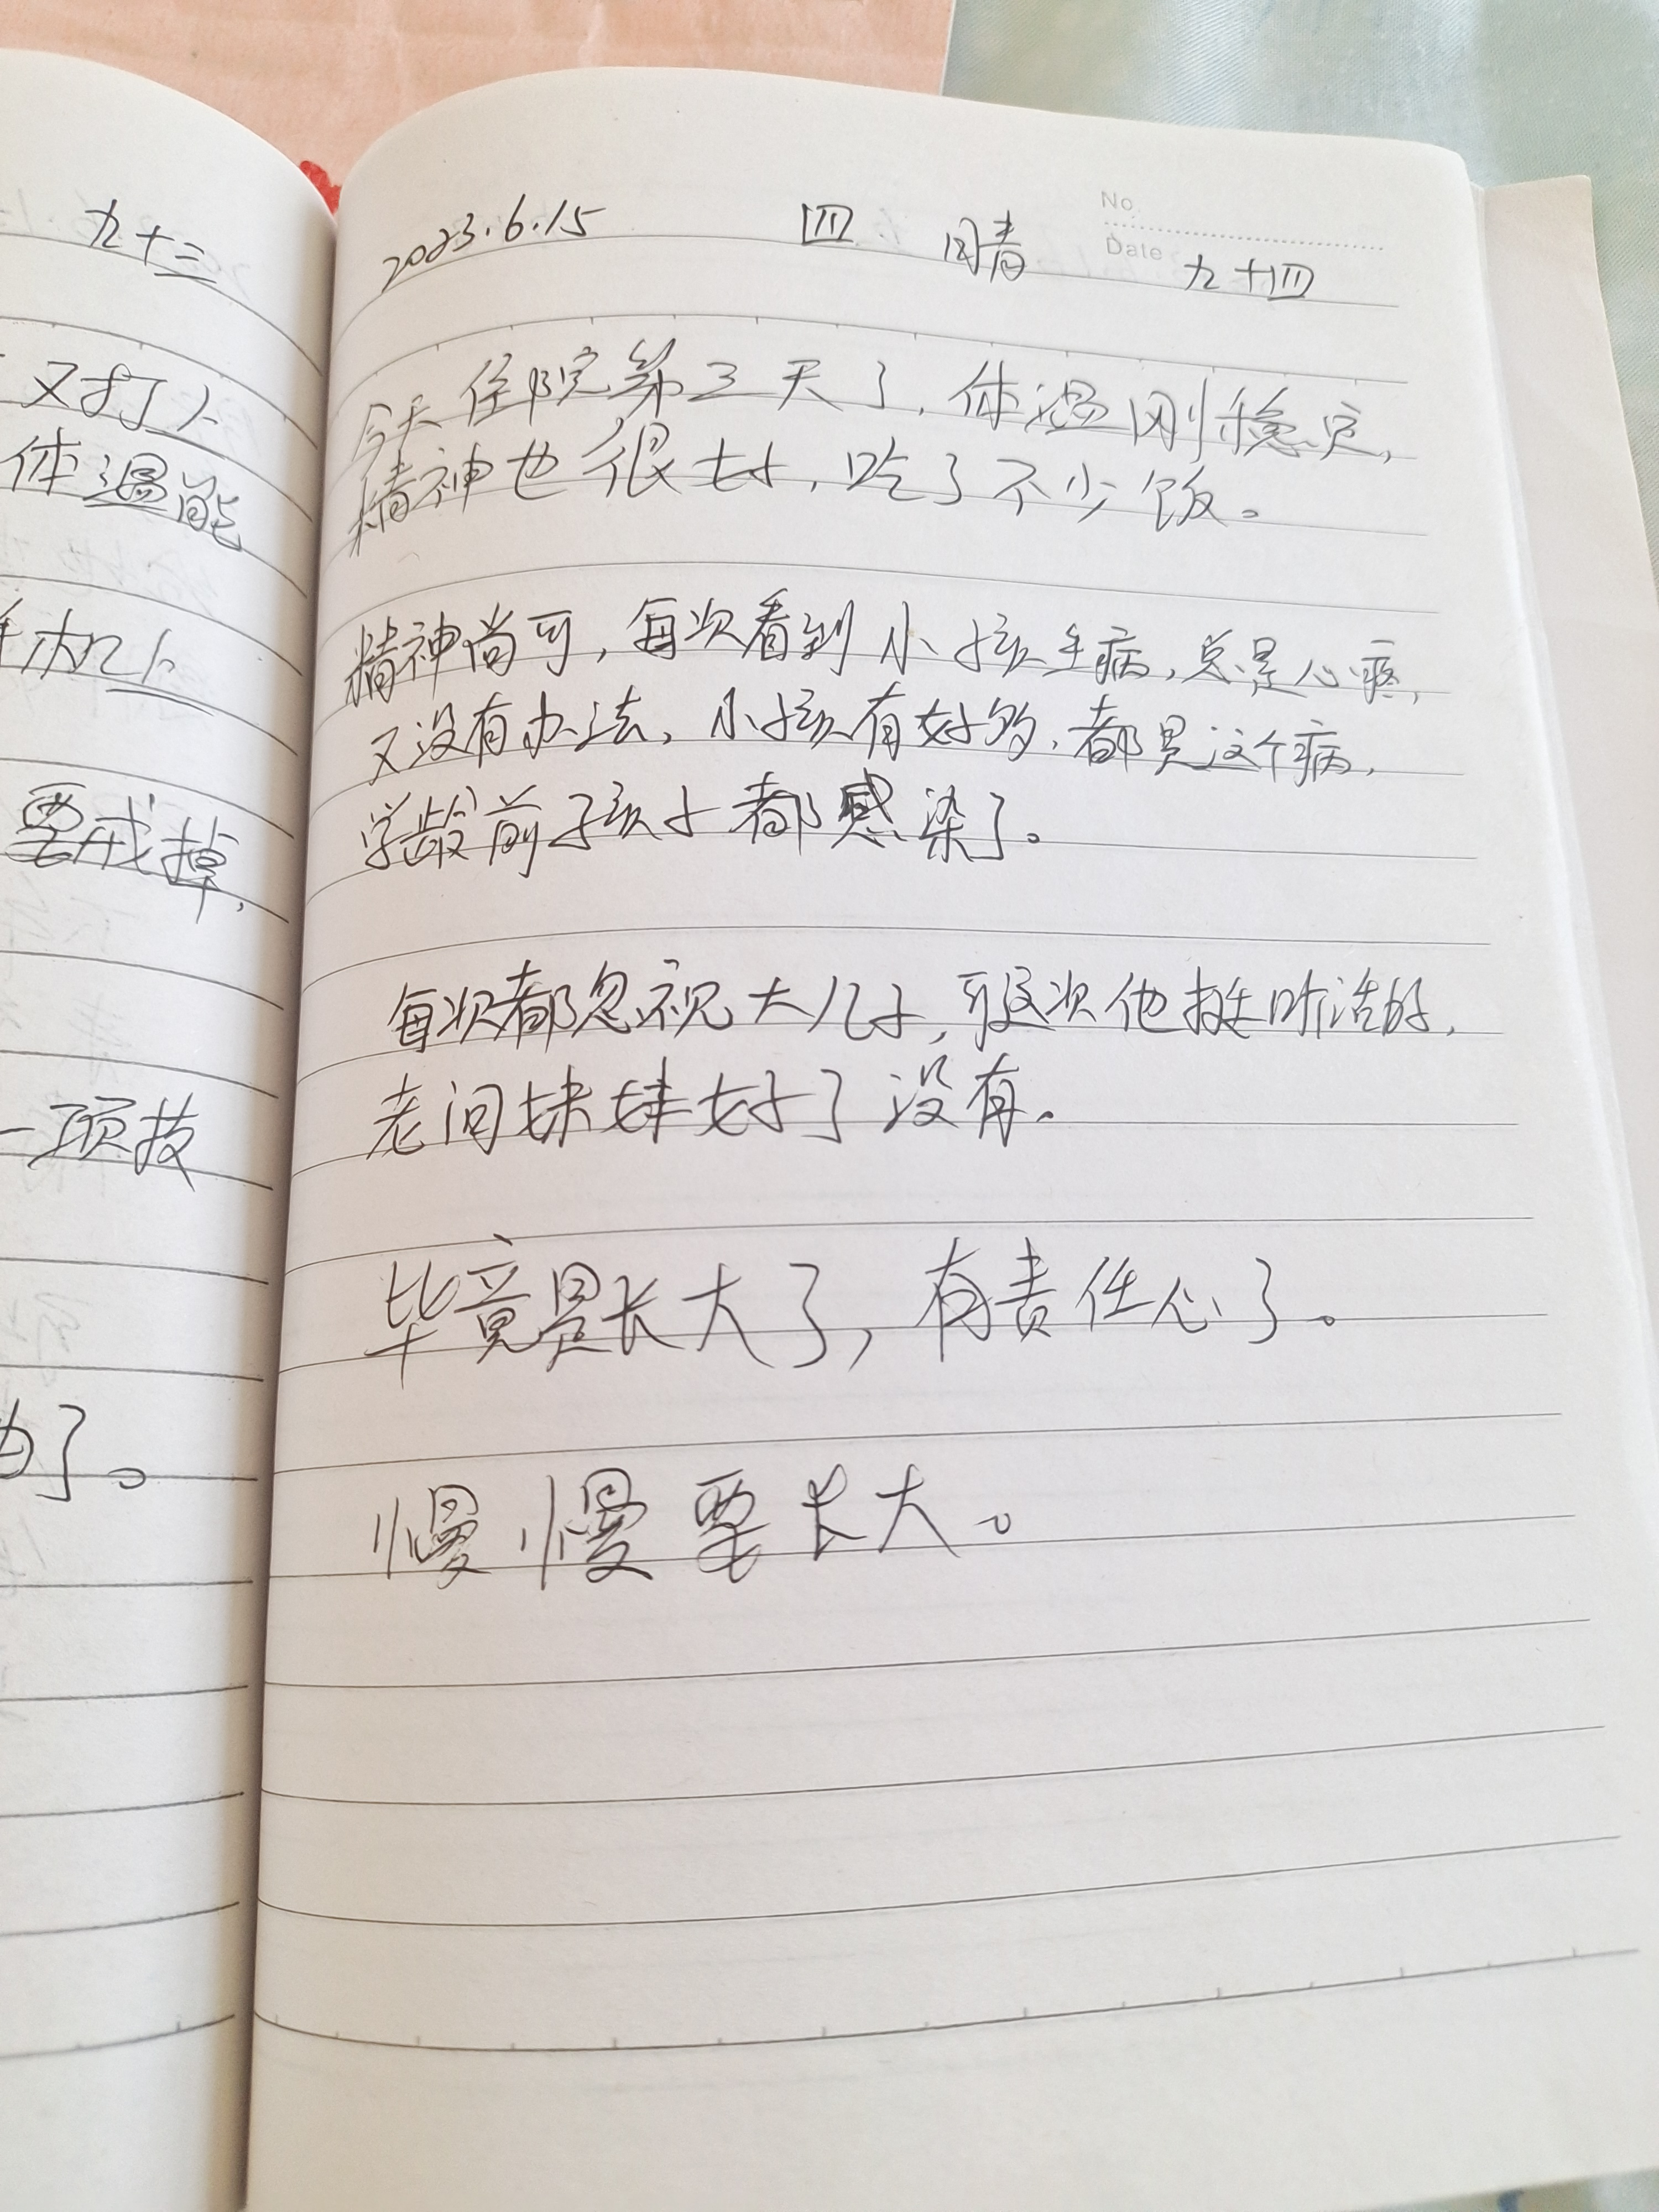 九十三
又打卜
体温能
手机上
要戒掉，
一项技
了。
2023.6.15 四 晴 九十四
No.
Date
今天住院第三天了，体温刚稳定，
精神也很好，吃了不少饭。
精神尚可，每次看到小孩生病，总是心疼，
又没有办法，小孩有好多，都是这个病，
学龄前孩子都感染了。
每次都忽视大儿子，可这次他挺
老问妹妹好了没有。
毕竟是长大了，有责任心了。
慢慢要长大。